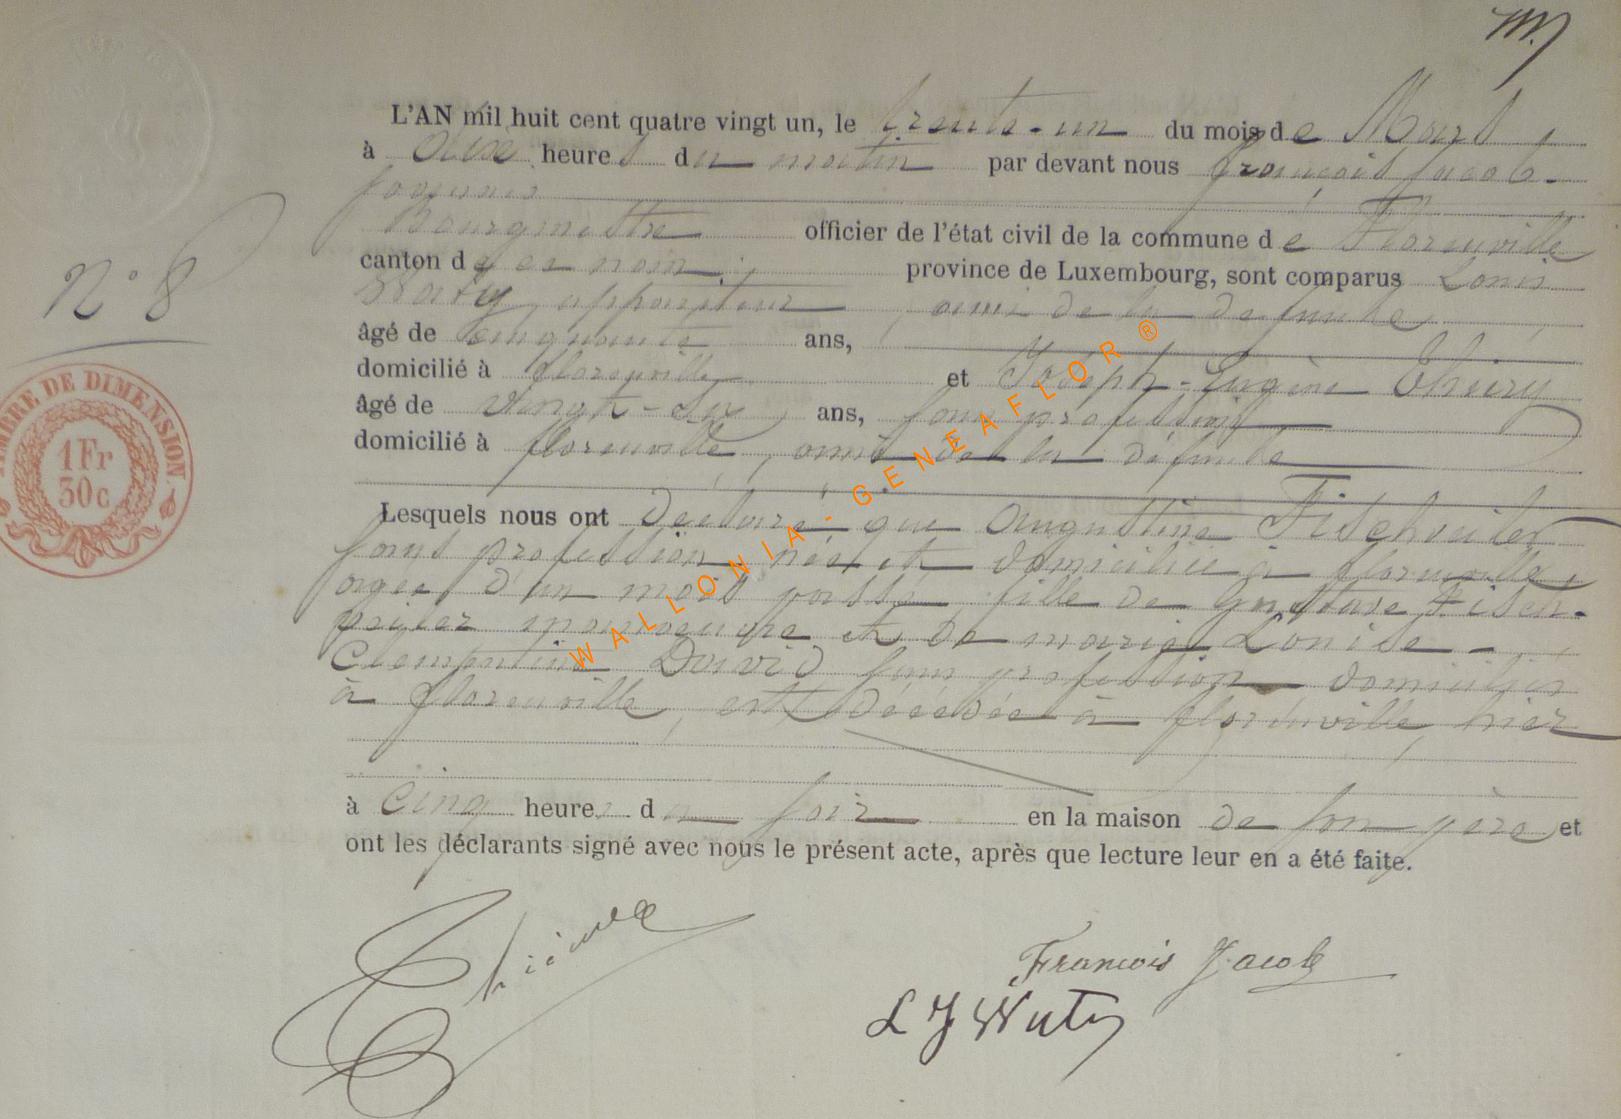 L'AN mil huit cent quatre vingt un, le trente-un du mois de Mars,
à dix heures du matin par devant nous François Jacob.
Bourgmestre officier de l'état civil de la commune de Florenville
canton de ce nom, province de Luxembourg, sont comparus Louis
, ami de la défunte,
âgé de cinquante ans,
domicilié à florenville et Joseph-Eugène
âgé de vingt-six ans, sans profession
domicilié à florenville, ami de la défunte
Lesquels nous ont déclaré que Augustine Fischweiler
sans profession née et domiciliée à florenville,
agée d'un mois passé, fille de Gustave Fisch-
weiler manoeuvre et de marie Louise-
Clementine David sans profession domiciliés
à florenville, est décédée à florenville, hier
à cinq heures du soir en la maison de son père et
ont les déclarants signé avec nous le présent acte, après que lecture leur en a été faite.
N° 8
TIMBRE DE DIMENSION
1Fr
30c
WALLONIA - GENEAFLOR ®
François Jacob